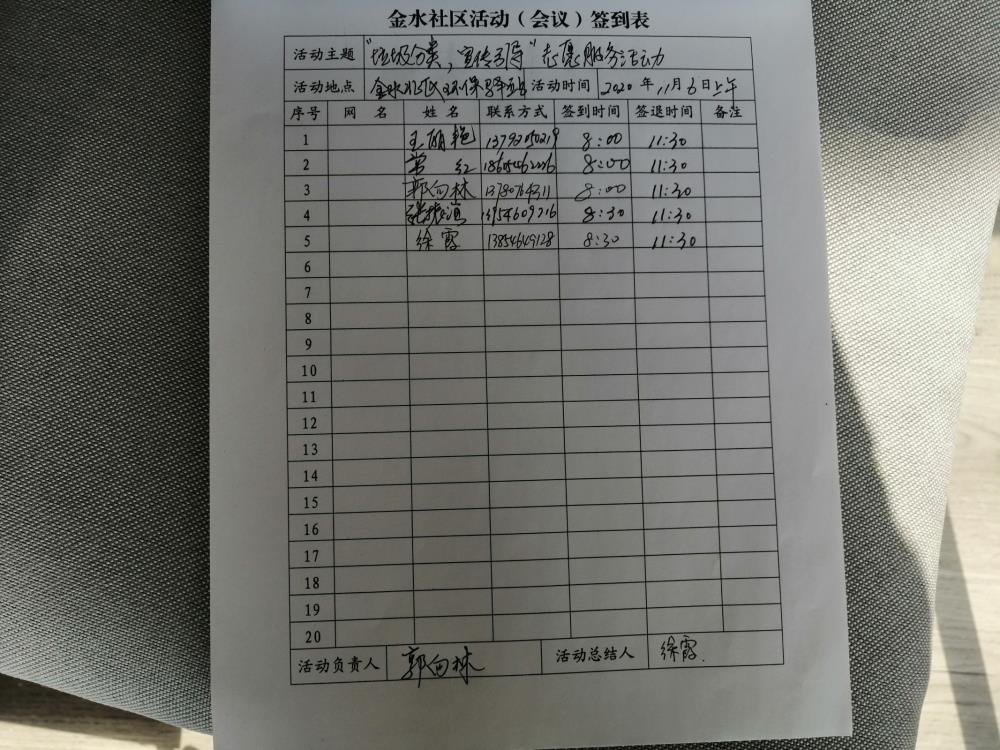 金水社区活动（会议）签到表
活动主题 "垃圾分类，宣传引导"志愿服务活动
活动地点 金水社区环保驿站 活动时间 2020年11月6日上午
序号 网名 姓名 联系方式 签到时间 签退时间 备注
1 王丽艳 8:00 11:30
2 常红 18605462226 8:00 11:30
3 郭向林 8:00 11:30
4 13954609216 8:30 11:30
5 徐霞 13854649128 8:30 11:30
6
7
8
9
10
11
12
13
14
15
16
17
18
19
20
活动负责人 郭向林 活动总结人 徐霞.